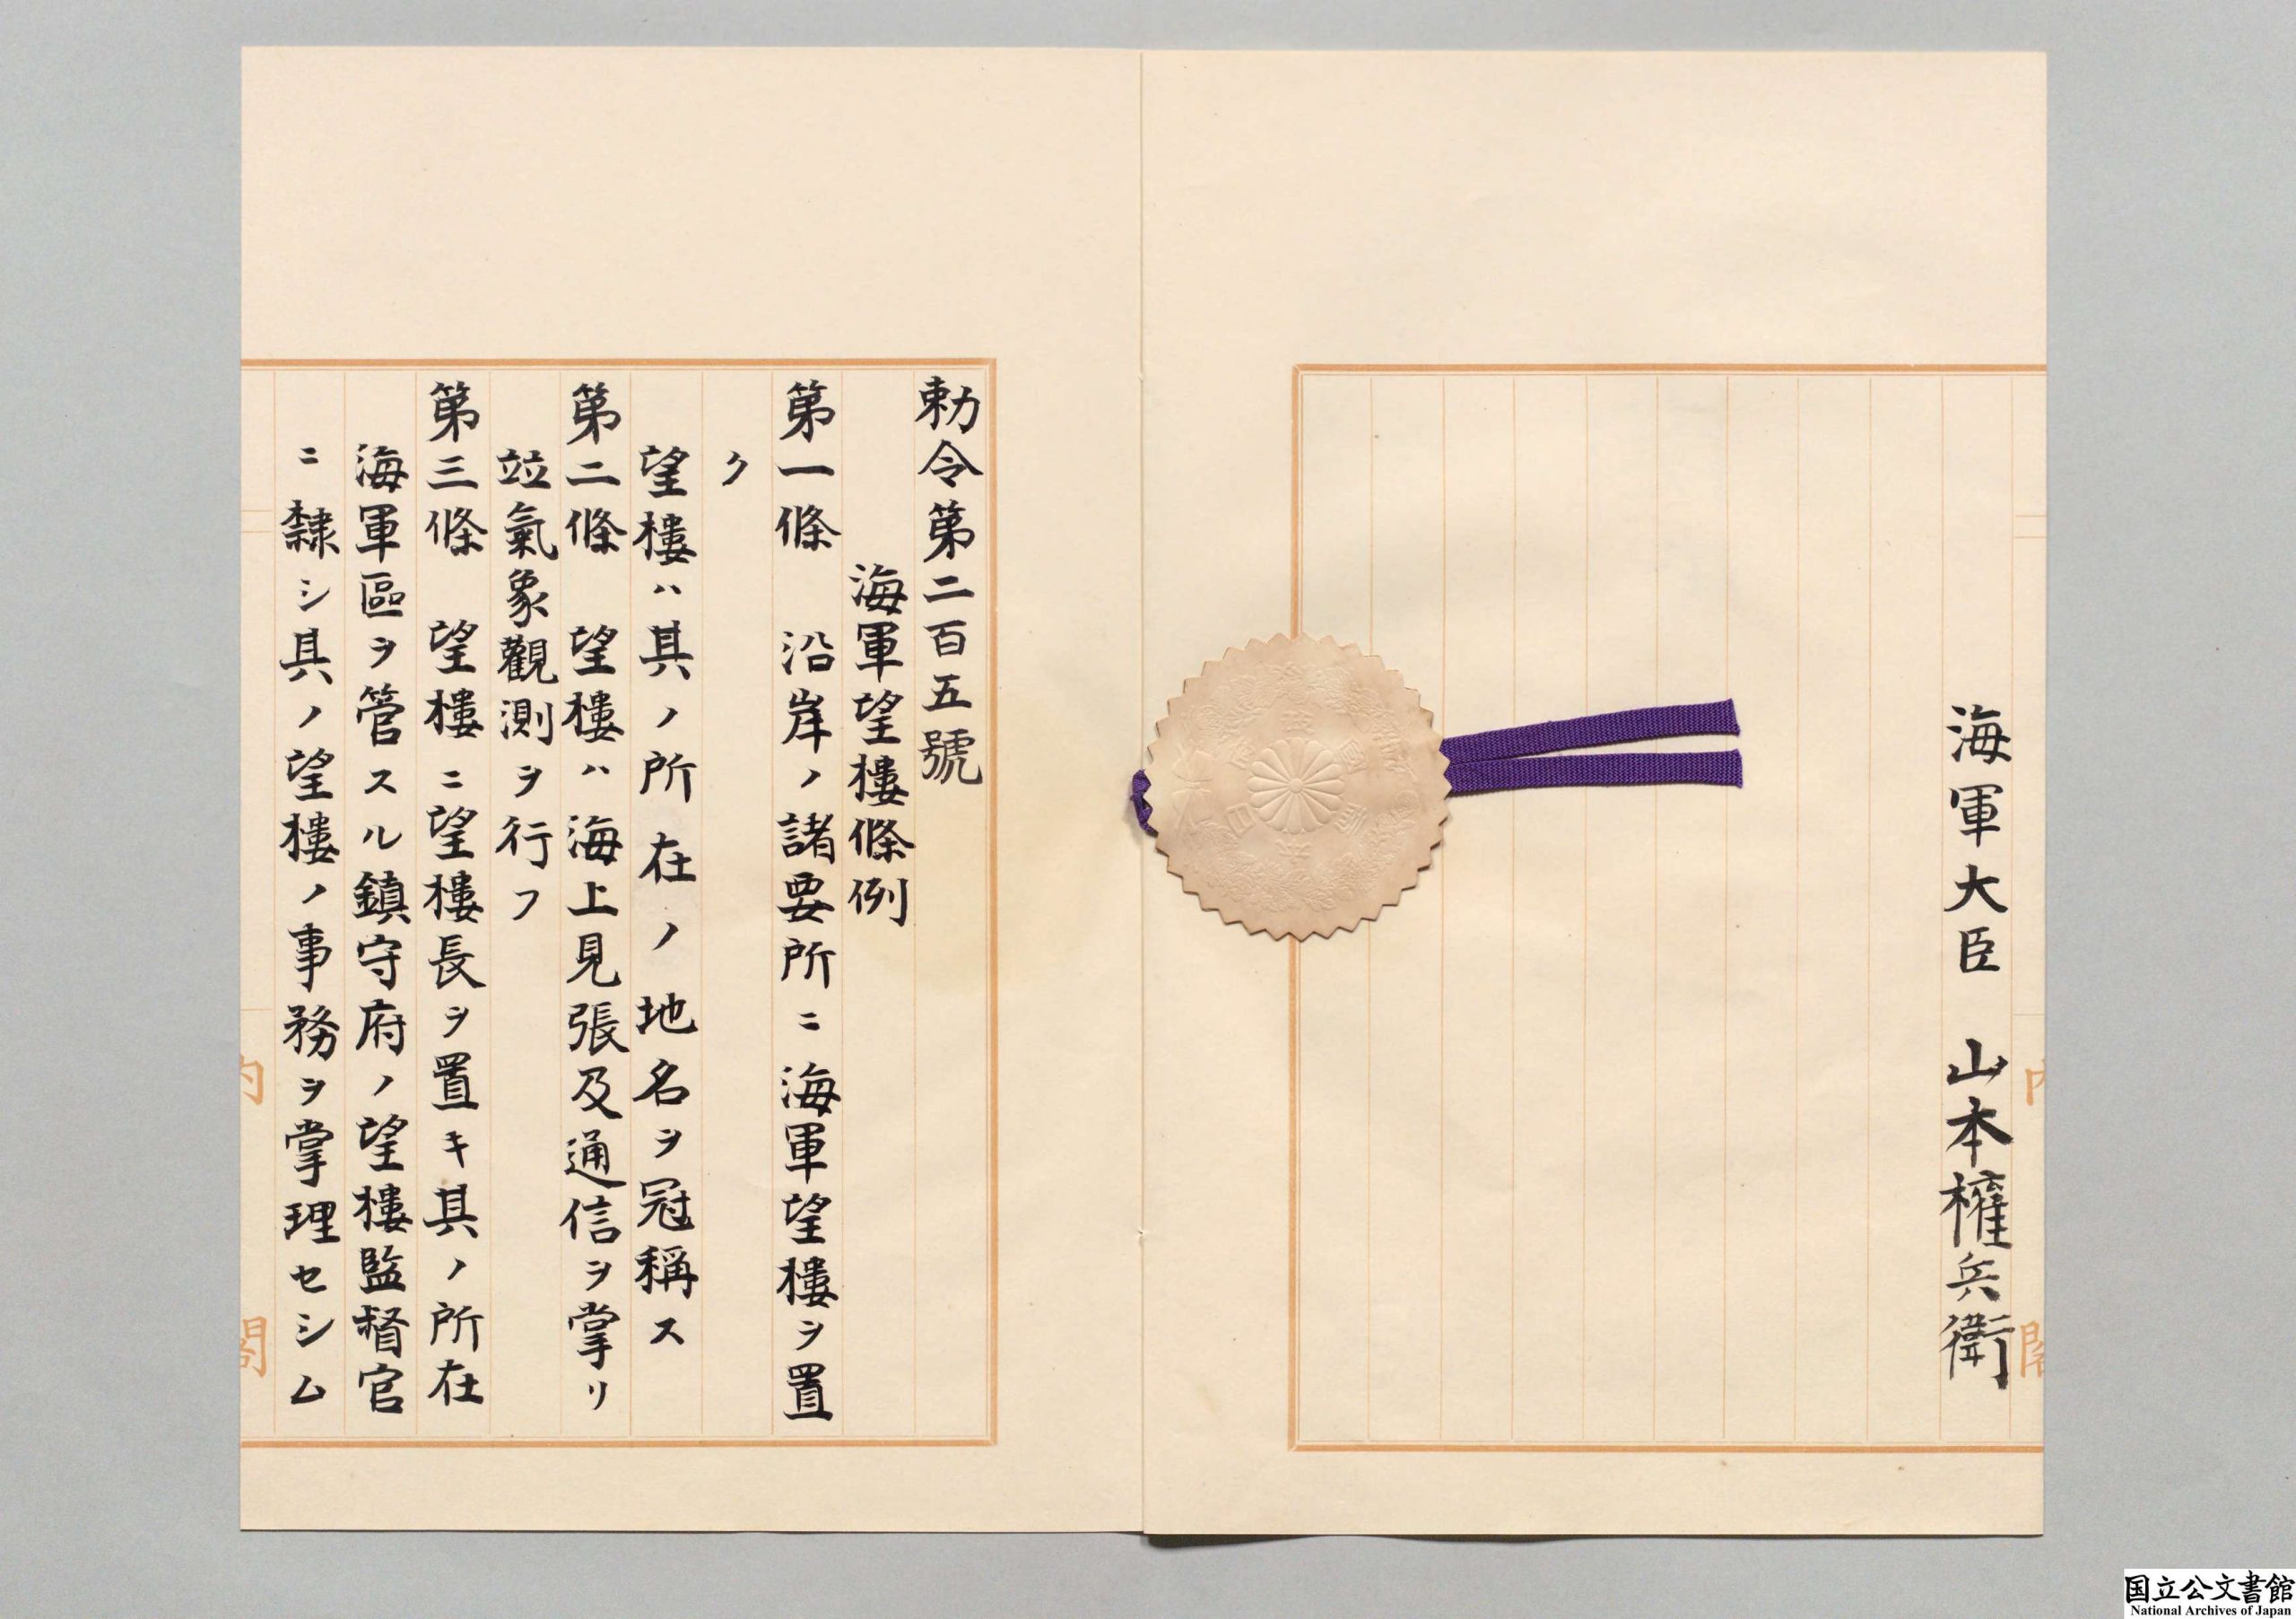 海軍大臣 山本權兵衞
勅令第二百五號
海軍望樓條例
第一條 沿岸ノ諸要所ニ海軍望樓ヲ置
ク
望樓ハ其ノ所在ノ地名ヲ冠稱ス
第二條 望樓ハ海上見張及通信ヲ掌リ
竝氣象觀測ヲ行フ
第三條 望樓ニ望樓長ヲ置キ其ノ所在
海軍區ヲ管スル鎮守府ノ望樓監督官
ニ隸シ具ノ望樓ノ事務ヲ掌理セシム
内
閣
国立公文書館
National Archives of Japan